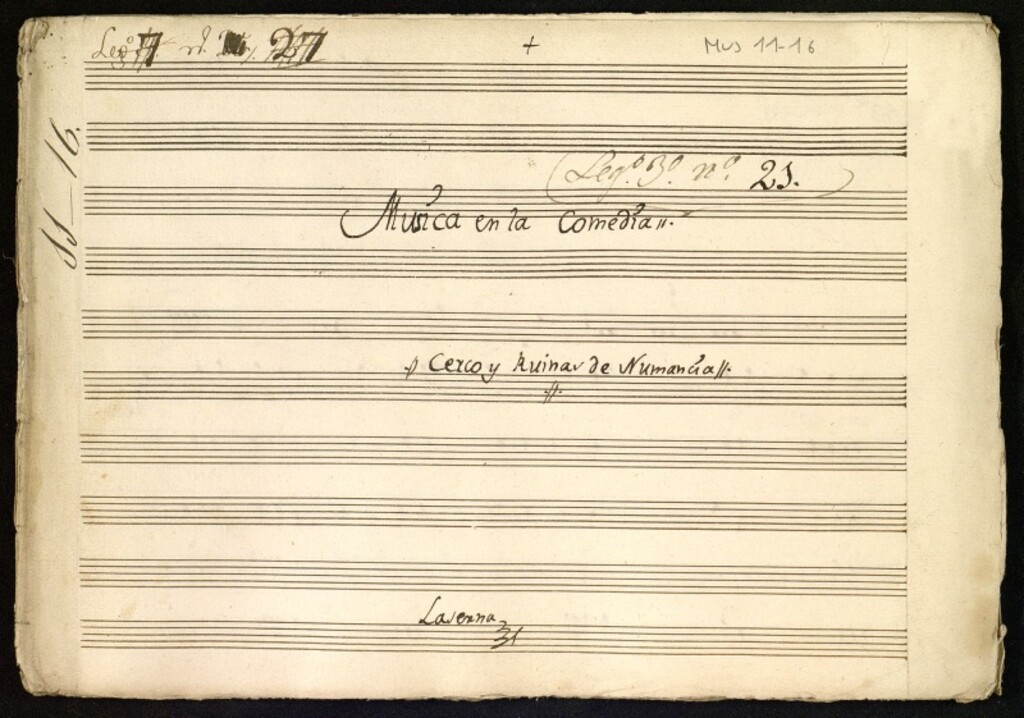 Leg.º
+
Mus 11-16
11-16.
(Leg.º 3.º n.º 21.)
Musica en la Comedia//.
Cerco y Ruinas de Numancia//.
//.
Laserna